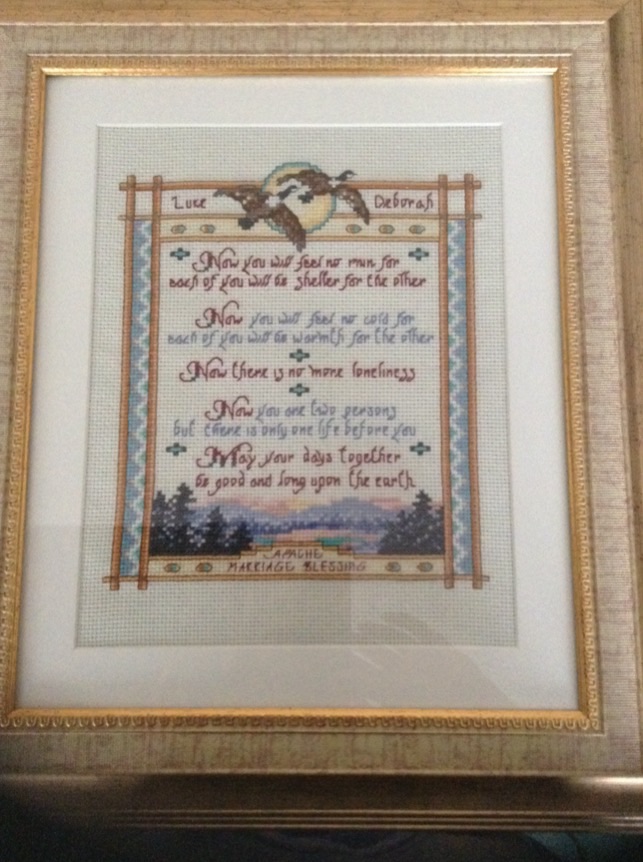 Luke Deborah
Now you will feel no rain for
each of you will be shelter for the other
Now you will feel no cold for
each of you will be warmth for the other
Now there is no more loneliness
Now you are two persons
but there is only one life before you
May your days together
be good and long upon the earth
APACHE
MARRIAGE BLESSING